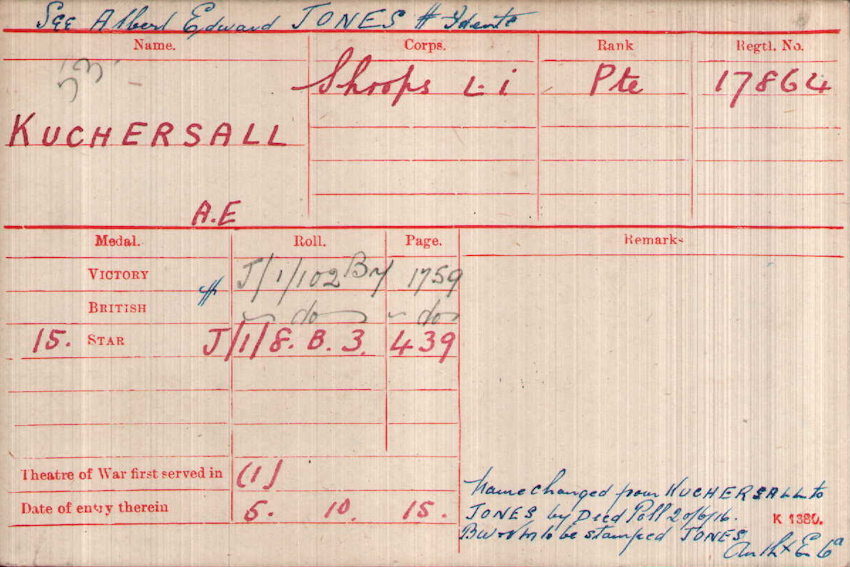 See Albert Edward JONES # Idents
Name. Corps. Rank Regtl. No.
Shrops L.i Pte 17864
KUCHERSALL
A.E
Medal. Roll. Page. Remarks
VICTORY J/1/102 B 1759
BRITISH # do do
15. STAR J/1/8. B. 3. 439
Theatre of War first served in (1)
Date of entry therein 5. 10. 15.
Name changed from KUCHERSALL to
JONES by Deed Poll 20/6/16.
K 1380.
to be stamped JONES